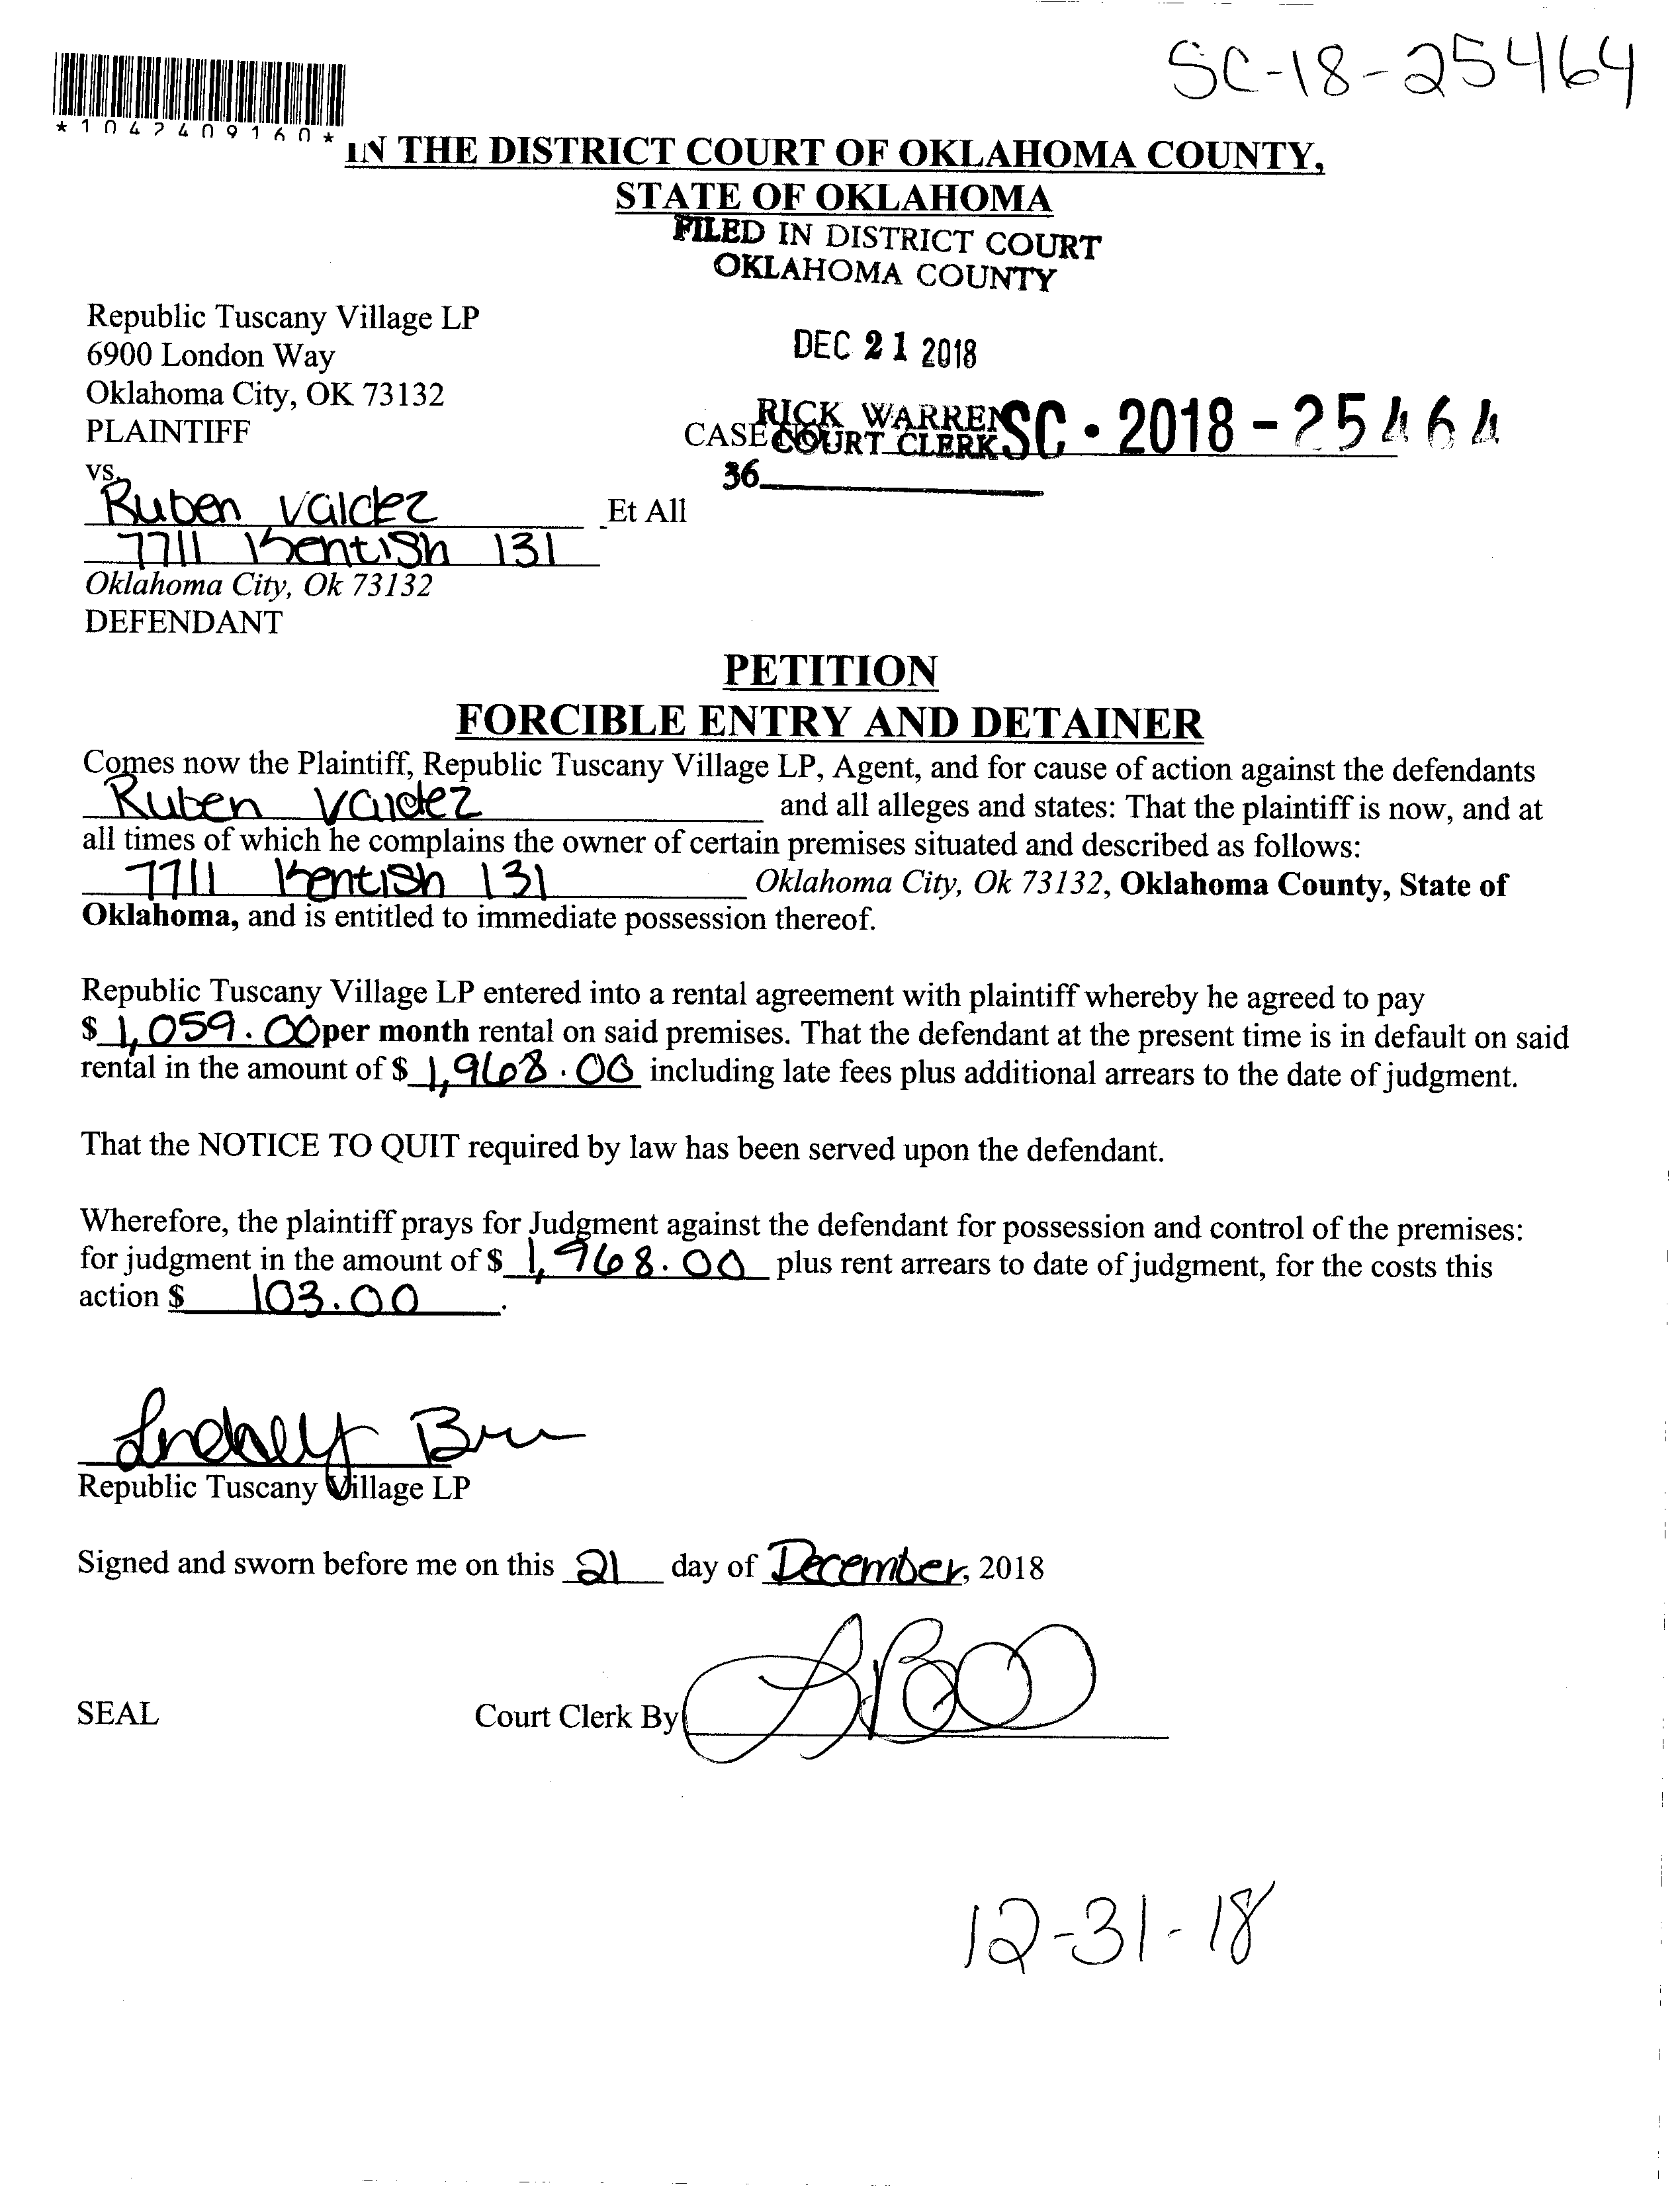 SC-18-25464
*1042409160*
IN THE DISTRICT COURT OF OKLAHOMA COUNTY,
STATE OF OKLAHOMA
FILED IN DISTRICT COURT
OKLAHOMA COUNTY
Republic Tuscany Village LP
6900 London Way
Oklahoma City, OK 73132
PLAINTIFF
DEC 21 2018
RICK WARREN
COURT CLERK
CASE SC-2018-25464
36
vs.
Ruben Valdez Et All
7711 Kentish 131
Oklahoma City, Ok 73132
DEFENDANT
PETITION
FORCIBLE ENTRY AND DETAINER
Comes now the Plaintiff, Republic Tuscany Village LP, Agent, and for cause of action against the defendants
Ruben Valdez and all alleges and states: That the plaintiff is now, and at
all times of which he complains the owner of certain premises situated and described as follows:
7711 Kentish 131 Oklahoma City, Ok 73132, Oklahoma County, State of
Oklahoma, and is entitled to immediate possession thereof.
Republic Tuscany Village LP entered into a rental agreement with plaintiff whereby he agreed to pay
$ 1,059.00 per month rental on said premises. That the defendant at the present time is in default on said
rental in the amount of $ 1,968.00 including late fees plus additional arrears to the date of judgment.
That the NOTICE TO QUIT required by law has been served upon the defendant.
Wherefore, the plaintiff prays for Judgment against the defendant for possession and control of the premises:
for judgment in the amount of $ 1,968.00 plus rent arrears to date of judgment, for the costs this
action $ 103.00.
Lindsey
Republic Tuscany Village LP
Signed and sworn before me on this 21 day of December, 2018
SEAL Court Clerk By
12-31-18